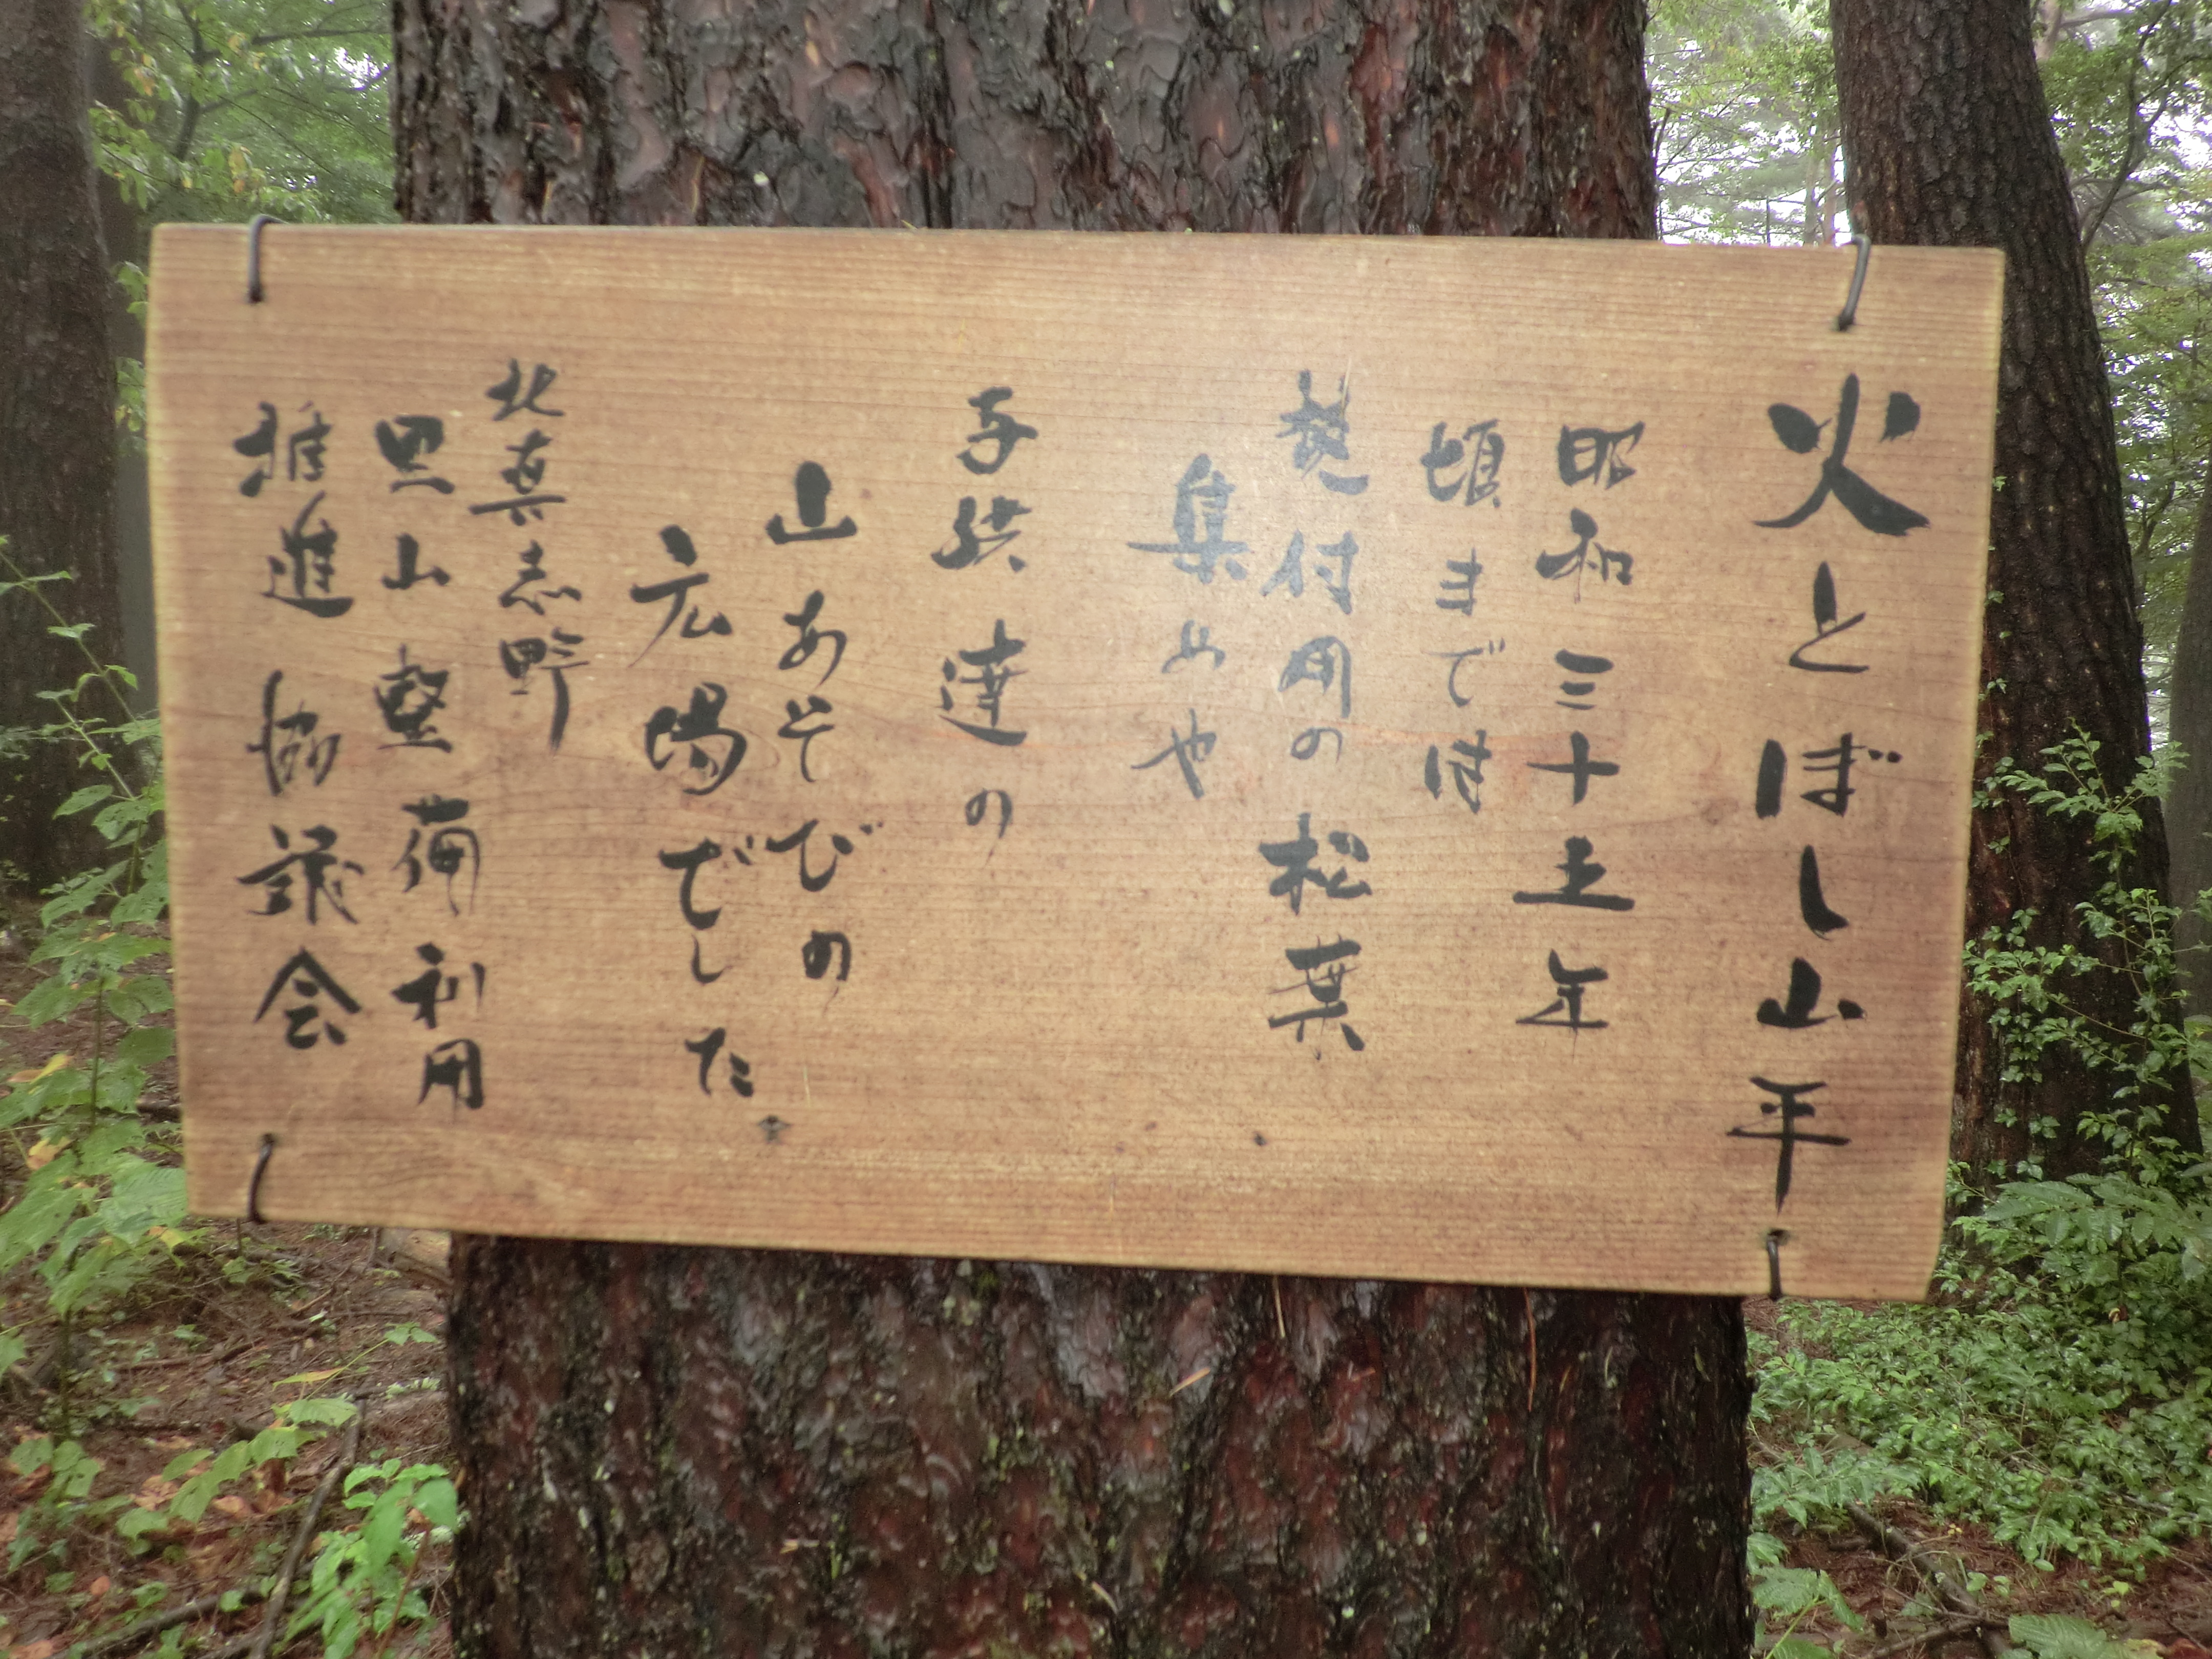 火とぼし山平
昭和三十五年
頃まででは
焚付用の松葉
集めや
子供達の
山あそびの
広場でした
北真志野
里山整備利用
推進協議会